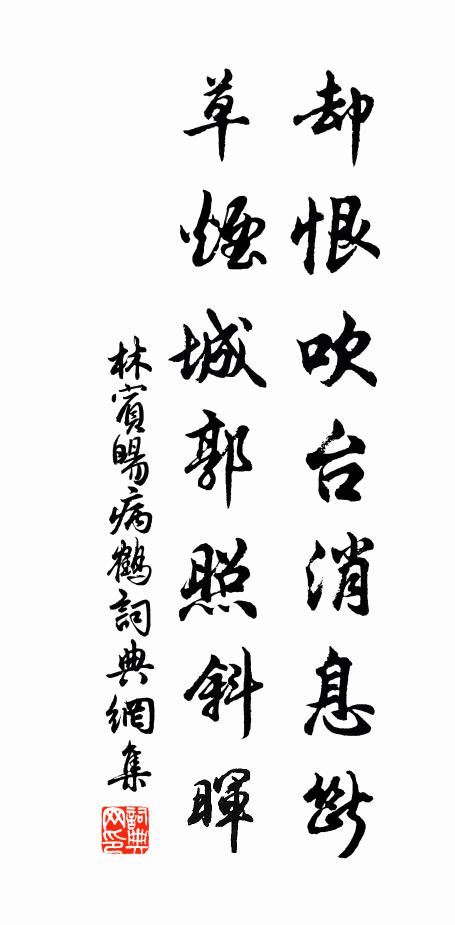 却恨吹台消息断
草煙城郭照斜暉
林賓暘病鶴詞典網集
詞典网印